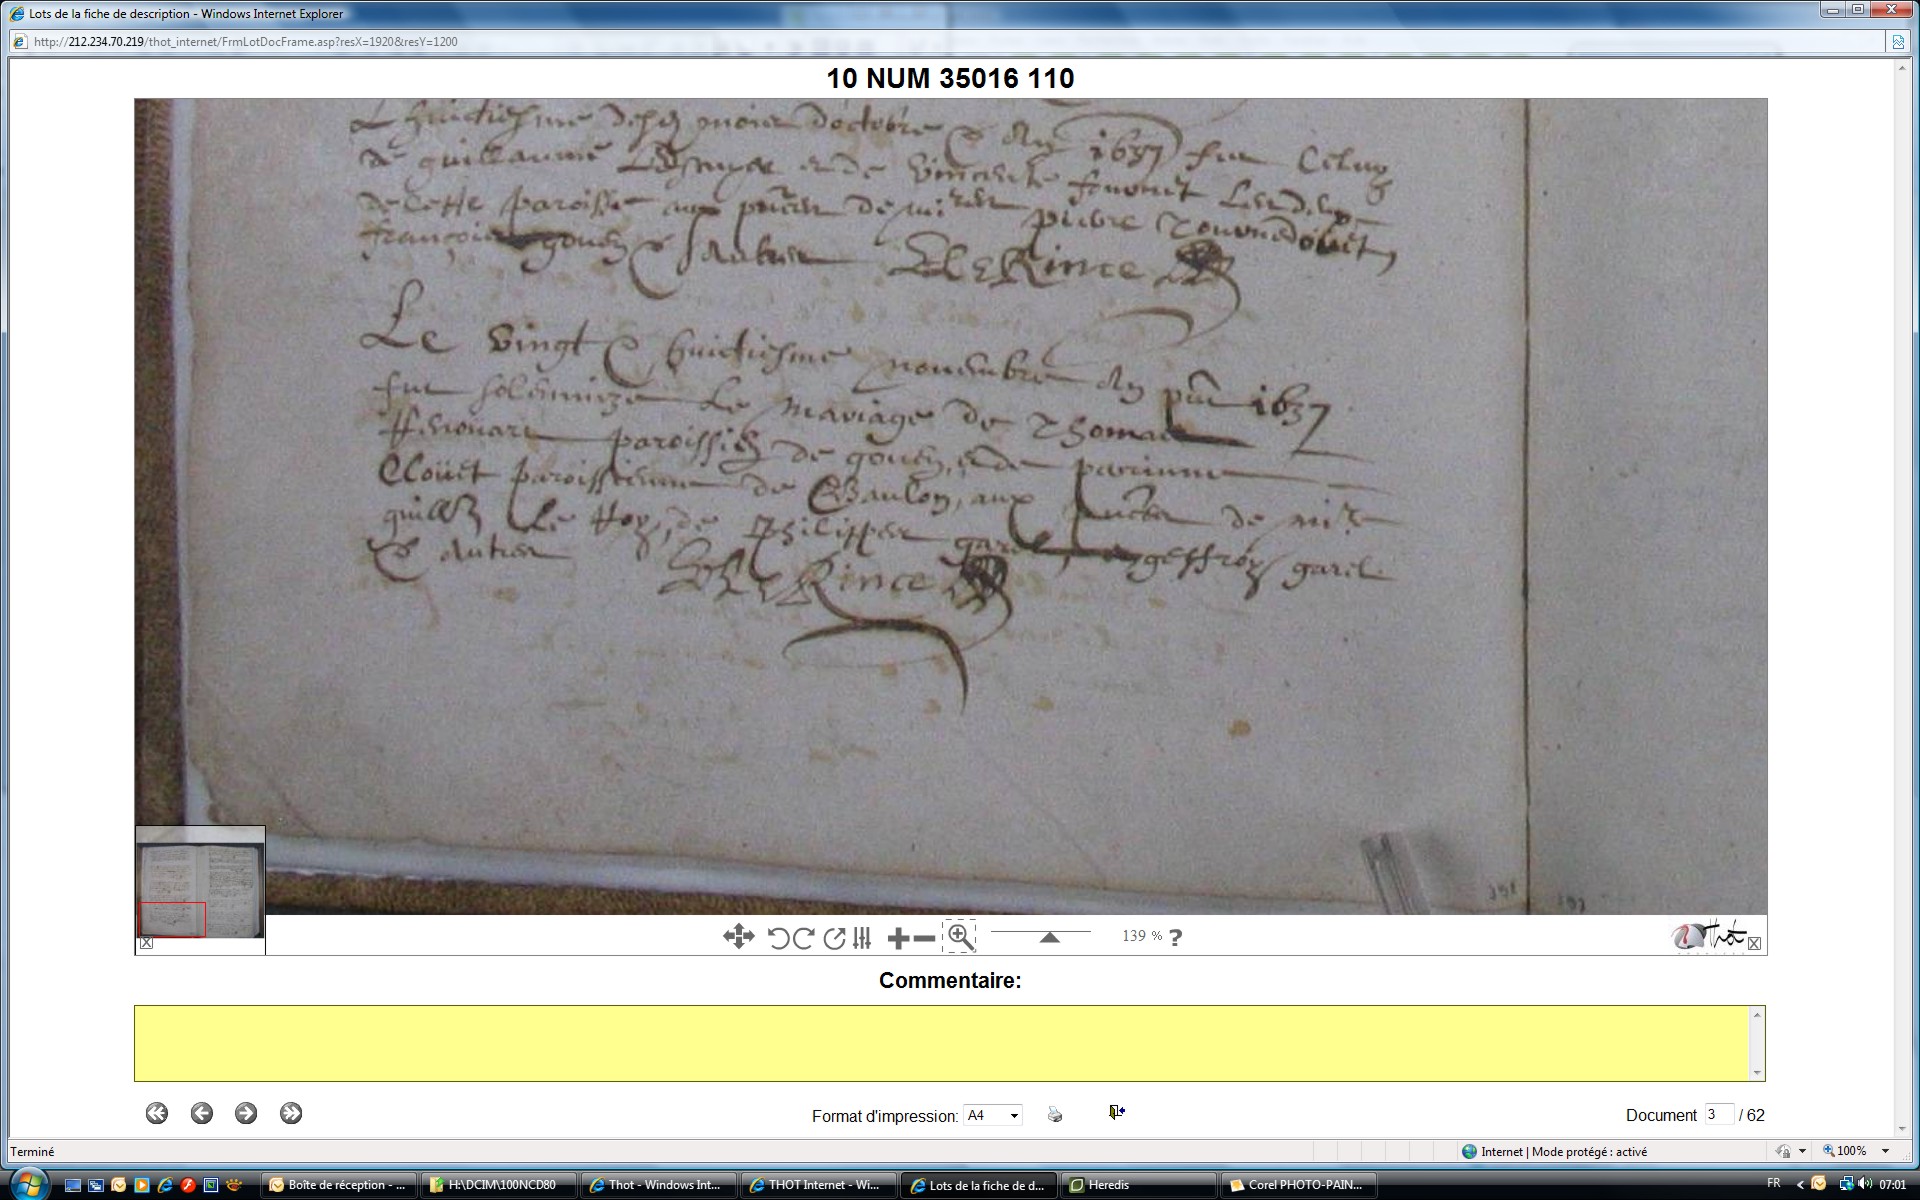 Lots de la fiche de description - Windows Internet Explorer
http://212.234.70.219/thot_internet/FrmLotDocFrame.asp?resX=1920&resY=1200
10 NUM 35016 110
L huictiesme moies d'octobre & An 1637 fut Celuy
de guillaume et de vincente Les deux
de cette paroisse aux de pierre
françois gouez & aultres LeRince
Le vingt & huictiesme novembre An 1637
fut solemnize Le Mariage de Thomas
paroissien de goven, et de perrinne
Clouet paroissienne de Baulon, aux de
guill Le Roy, de Philippes geffroy garel
& autres LeRince
139 % ?
Thot
Commentaire:
Format d'impression: A4
Document 3 / 62
Terminé
Internet | Mode protégé : activé
100%
Boîte de réception - ...
H:\DCIM\100NCD80
Thot - Windows Int...
THOT Internet - Wi...
Lots de la fiche de d...
Heredis
Corel PHOTO-PAIN...
FR
07:01